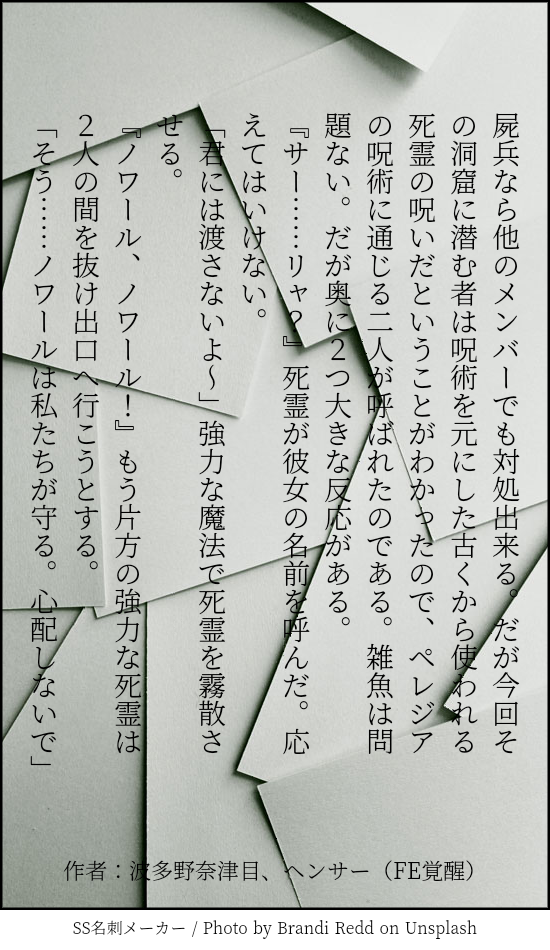 屍兵なら他のメンバーでも対処出来る。だが今回そ
の洞窟に潜む者は呪術を元にした古くから使われる
死霊の呪いだということがわかったので、ペレジア
の呪術に通じる二人が呼ばれたのである。雑魚は問
題ない。だが奥に２つ大きな反応がある。
『サー……リャ？』死霊が彼女の名前を呼んだ。応
えてはいけない。
「君には渡さないよ～」強力な魔法で死霊を霧散さ
せる。
『ノワール、ノワール！』もう片方の強力な死霊は
２人の間を抜け出口へ行こうとする。
「そう……ノワールは私たちが守る。心配しないで」
作者：波多野奈津目、ヘンサー（FE覚醒）
SS名刺メーカー / Photo by Brandi Redd on Unsplash